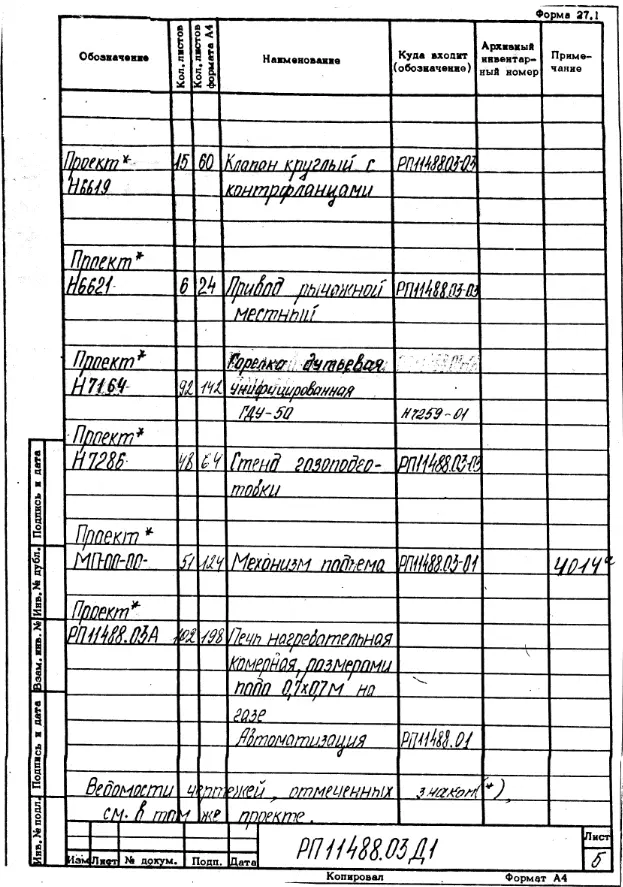 Форма 27.1
Обозначение Кол. листов Кол. листов формата А4 Наименование Куда входит (обозначение) Архивный инвентарный номер Примечание
Проект* 15 60 Клапан круглый с РП11488.03-03
Н6619 контрфланцами
Проект*
Н6621 6 24 Привод рычажной РП11488.03-03
местный
Проект* Горелка дутьевая
Н7164 92 142 унифицированная
ГДУ-50 Н7259-01
Проект*
Н7286 48 64 Стенд газоподго- РП11488.03-03
товки
Проект*
МП-00-00- 51 124 Механизм подъема РП11488.03-01
Проект*
РП11488.03А 102 198 Печь нагревательная
камерная, размерами
пода 0,7×0,7м на
газе
Автоматизация РП11488.01
Ведомости чертежей, отмеченных знаком(*),
см. в том же проекте.
Инв. № подл. Подпись и дата Взам. инв. № Инв. № дубл. Подпись и дата
РП11488.03Д1
Лист
5
Изм Лист № докум. Подп. Дата
Копировал Формат А4